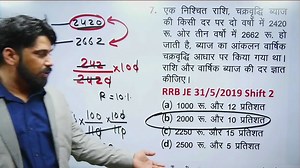 2420
2662
242
2420 × 100
R = 10%
7. एक निश्चित राशि, चक्रवृद्धि ब्याज
की किसी दर पर दो वर्षों में 2420
रू. ओर तीन वर्षों में 2662 रू. हो
जाती है, ब्याज का आंकलन वार्षिक
चक्रवृद्धि आधार पर किया गया था।
राशि और वार्षिक ब्याज की दर ज्ञात
कीजिए।
RRB JE 31/5/2019 Shift 2
(a) 1000 रू. और 12 प्रतिशत
(b) 2000 रू. और 10 प्रतिशत
(c) 2250 रू. और 15 प्रतिशत
(d) 2500 रू. और 5 प्रतिशत